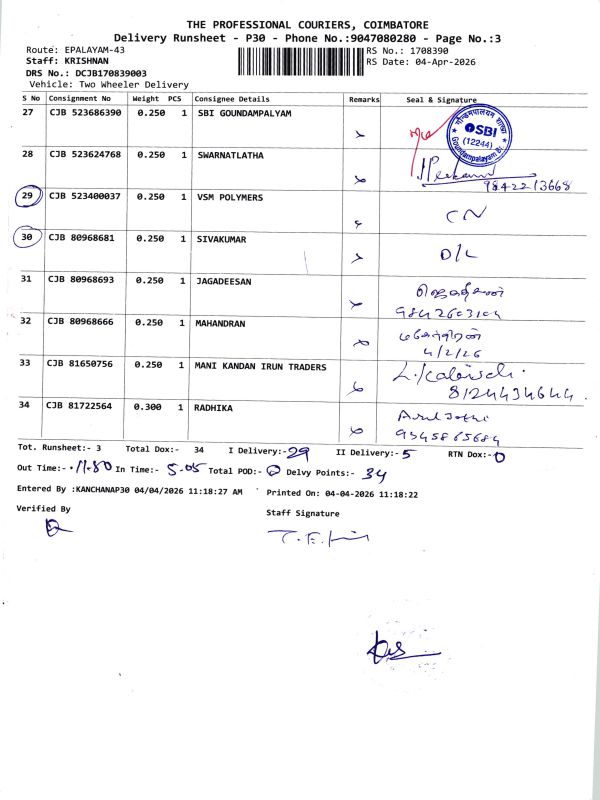 THE PROFESSIONAL COURIERS, COIMBATORE
Delivery Runsheet - P30 - Phone No.:9047080280 - Page No.:3
Route: EPALAYAM-43
RS No.: 1708390
Staff: KRISHNAN
RS Date: 04-Apr-2026
DRS No.: DCJB170839003
Vehicle: Two Wheeler Delivery
S No Consignment No Weight PCS Consignee Details Remarks Seal & Signature
27 CJB 523686390 0.250 1 SBI GOUNDAMPALYAM
SBI
(12244)
Goundampalayam Br.
28 CJB 523624768 0.250 1 SWARNATLATHA
9842213668
29 CJB 523400037 0.250 1 VSM POLYMERS CN
30 CJB 80968681 0.250 1 SIVAKUMAR D/L
31 CJB 80968693 0.250 1 JAGADEESAN
9842603104
32 CJB 80968666 0.250 1 MAHANDRAN
4/2/26
33 CJB 81650756 0.250 1 MANI KANDAN IRUN TRADERS
8124434644
34 CJB 81722564 0.300 1 RADHIKA
9345865684
Tot. Runsheet:- 3 Total Dox:- 34 I Delivery:- 29 II Delivery:- 5 RTN Dox:- 0
Out Time:- 11.80 In Time:- 5.05 Total POD:- 0 Delvy Points:- 34
Entered By :KANCHANAP30 04/04/2026 11:18:27 AM Printed On: 04-04-2026 11:18:22
Verified By
Staff Signature